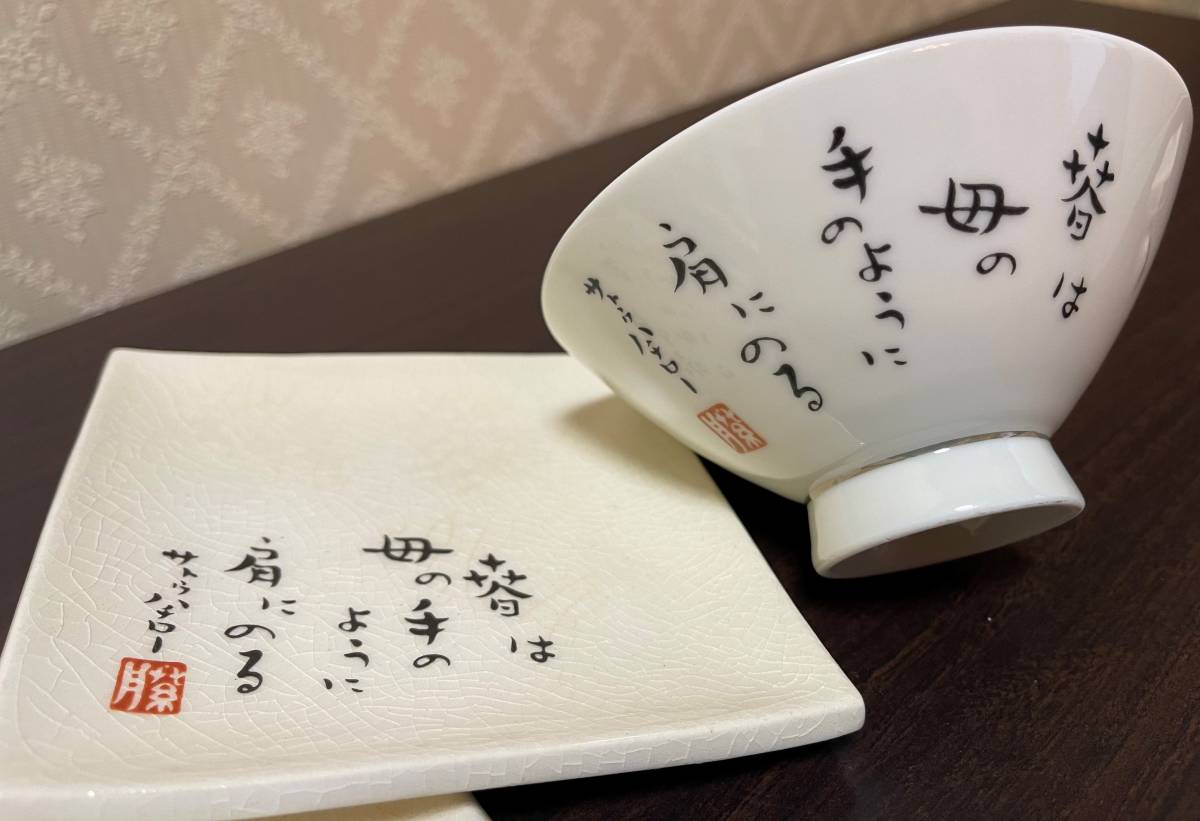 春は
母の
手のように
肩にのる
サトウハチロー
藤
春は
母の手の
ように
肩にのる
サトウハチロー
藤